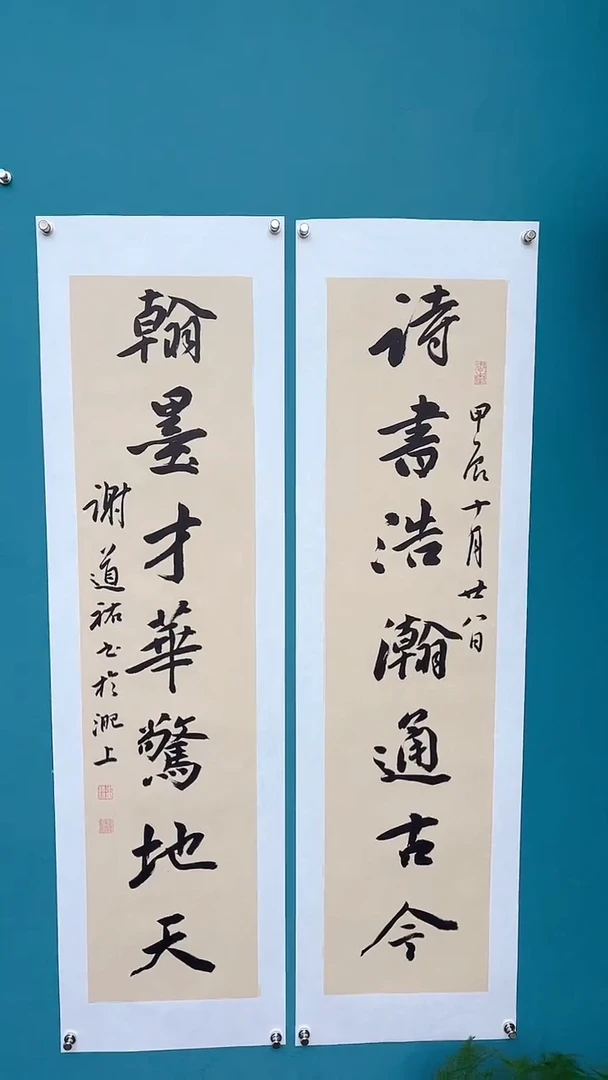 诗書浩瀚通古今
甲辰十月廿八日
翰墨才華驚地天
谢道祐书於淝上